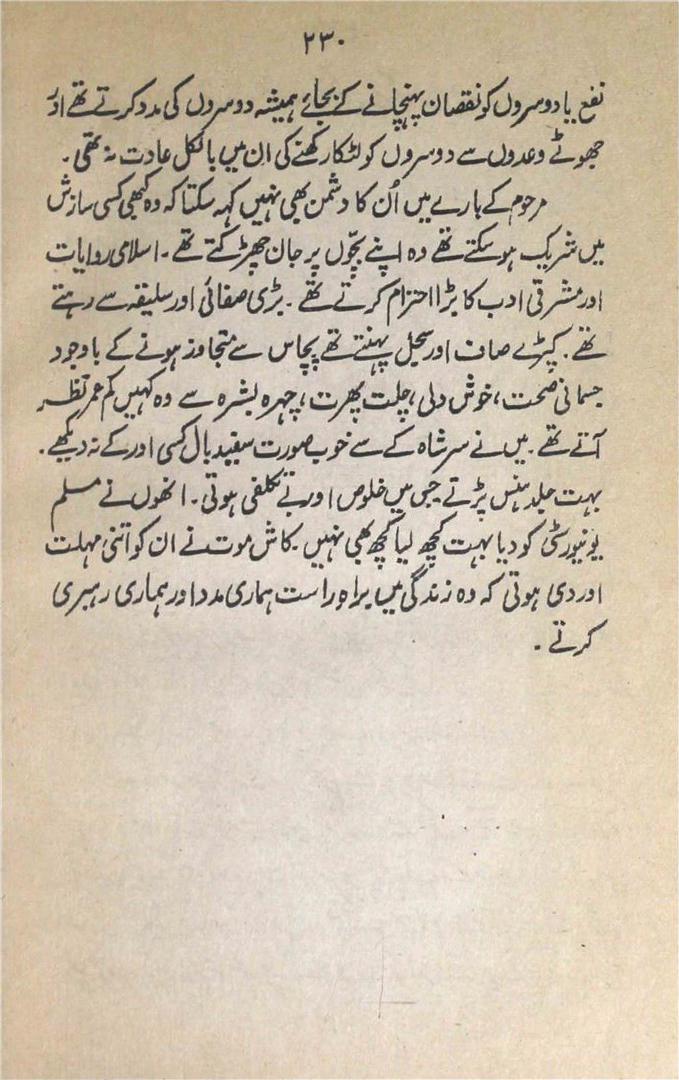 ۲۳۰
نفع یا دوسروں کو نقصان پہنچانے کے بجائے ہمیشہ دوسروں کی مدد کرتے تھے اور
جھوٹے وعدوں سے دوسروں کو لٹکا رکھنے کی ان میں بالکل عادت نہ تھی۔
مرحوم کے بارے میں اُن کا دشمن بھی نہیں کہہ سکتا کہ وہ کبھی کسی سازش
میں شریک ہو سکتے تھے وہ اپنے بچّوں پر جان چھڑکتے تھے۔ اسلامی روایات
اور مشرقی ادب کا بڑا احترام کرتے تھے۔ بڑی صفائی اور سلیقہ سے رہتے
تھے۔ کپڑے صاف اور سجیل پہنتے تھے پچاس سے متجاوز ہونے کے باوجود
جسمانی صحت، خوش دلی، چلت پھرت، چہرہ بشرہ سے وہ کہیں کم عمر نظر
آتے تھے۔ میں نے سر شاہ کے سے خوب صورت سفید بال کسی اور کے نہ دیکھے۔
بہت جلد ہنس پڑتے جس میں خلوص اور بے تکلفی ہوتی۔ انھوں نے مسلم
یونیورسٹی کو دیا بہت کچھ لیا کچھ بھی نہیں۔ کاش موت نے ان کو اتنی مہلت
اور دی ہوتی کہ وہ زندگی میں براہِ راست ہماری مدد اور ہماری رہبری
کرتے۔